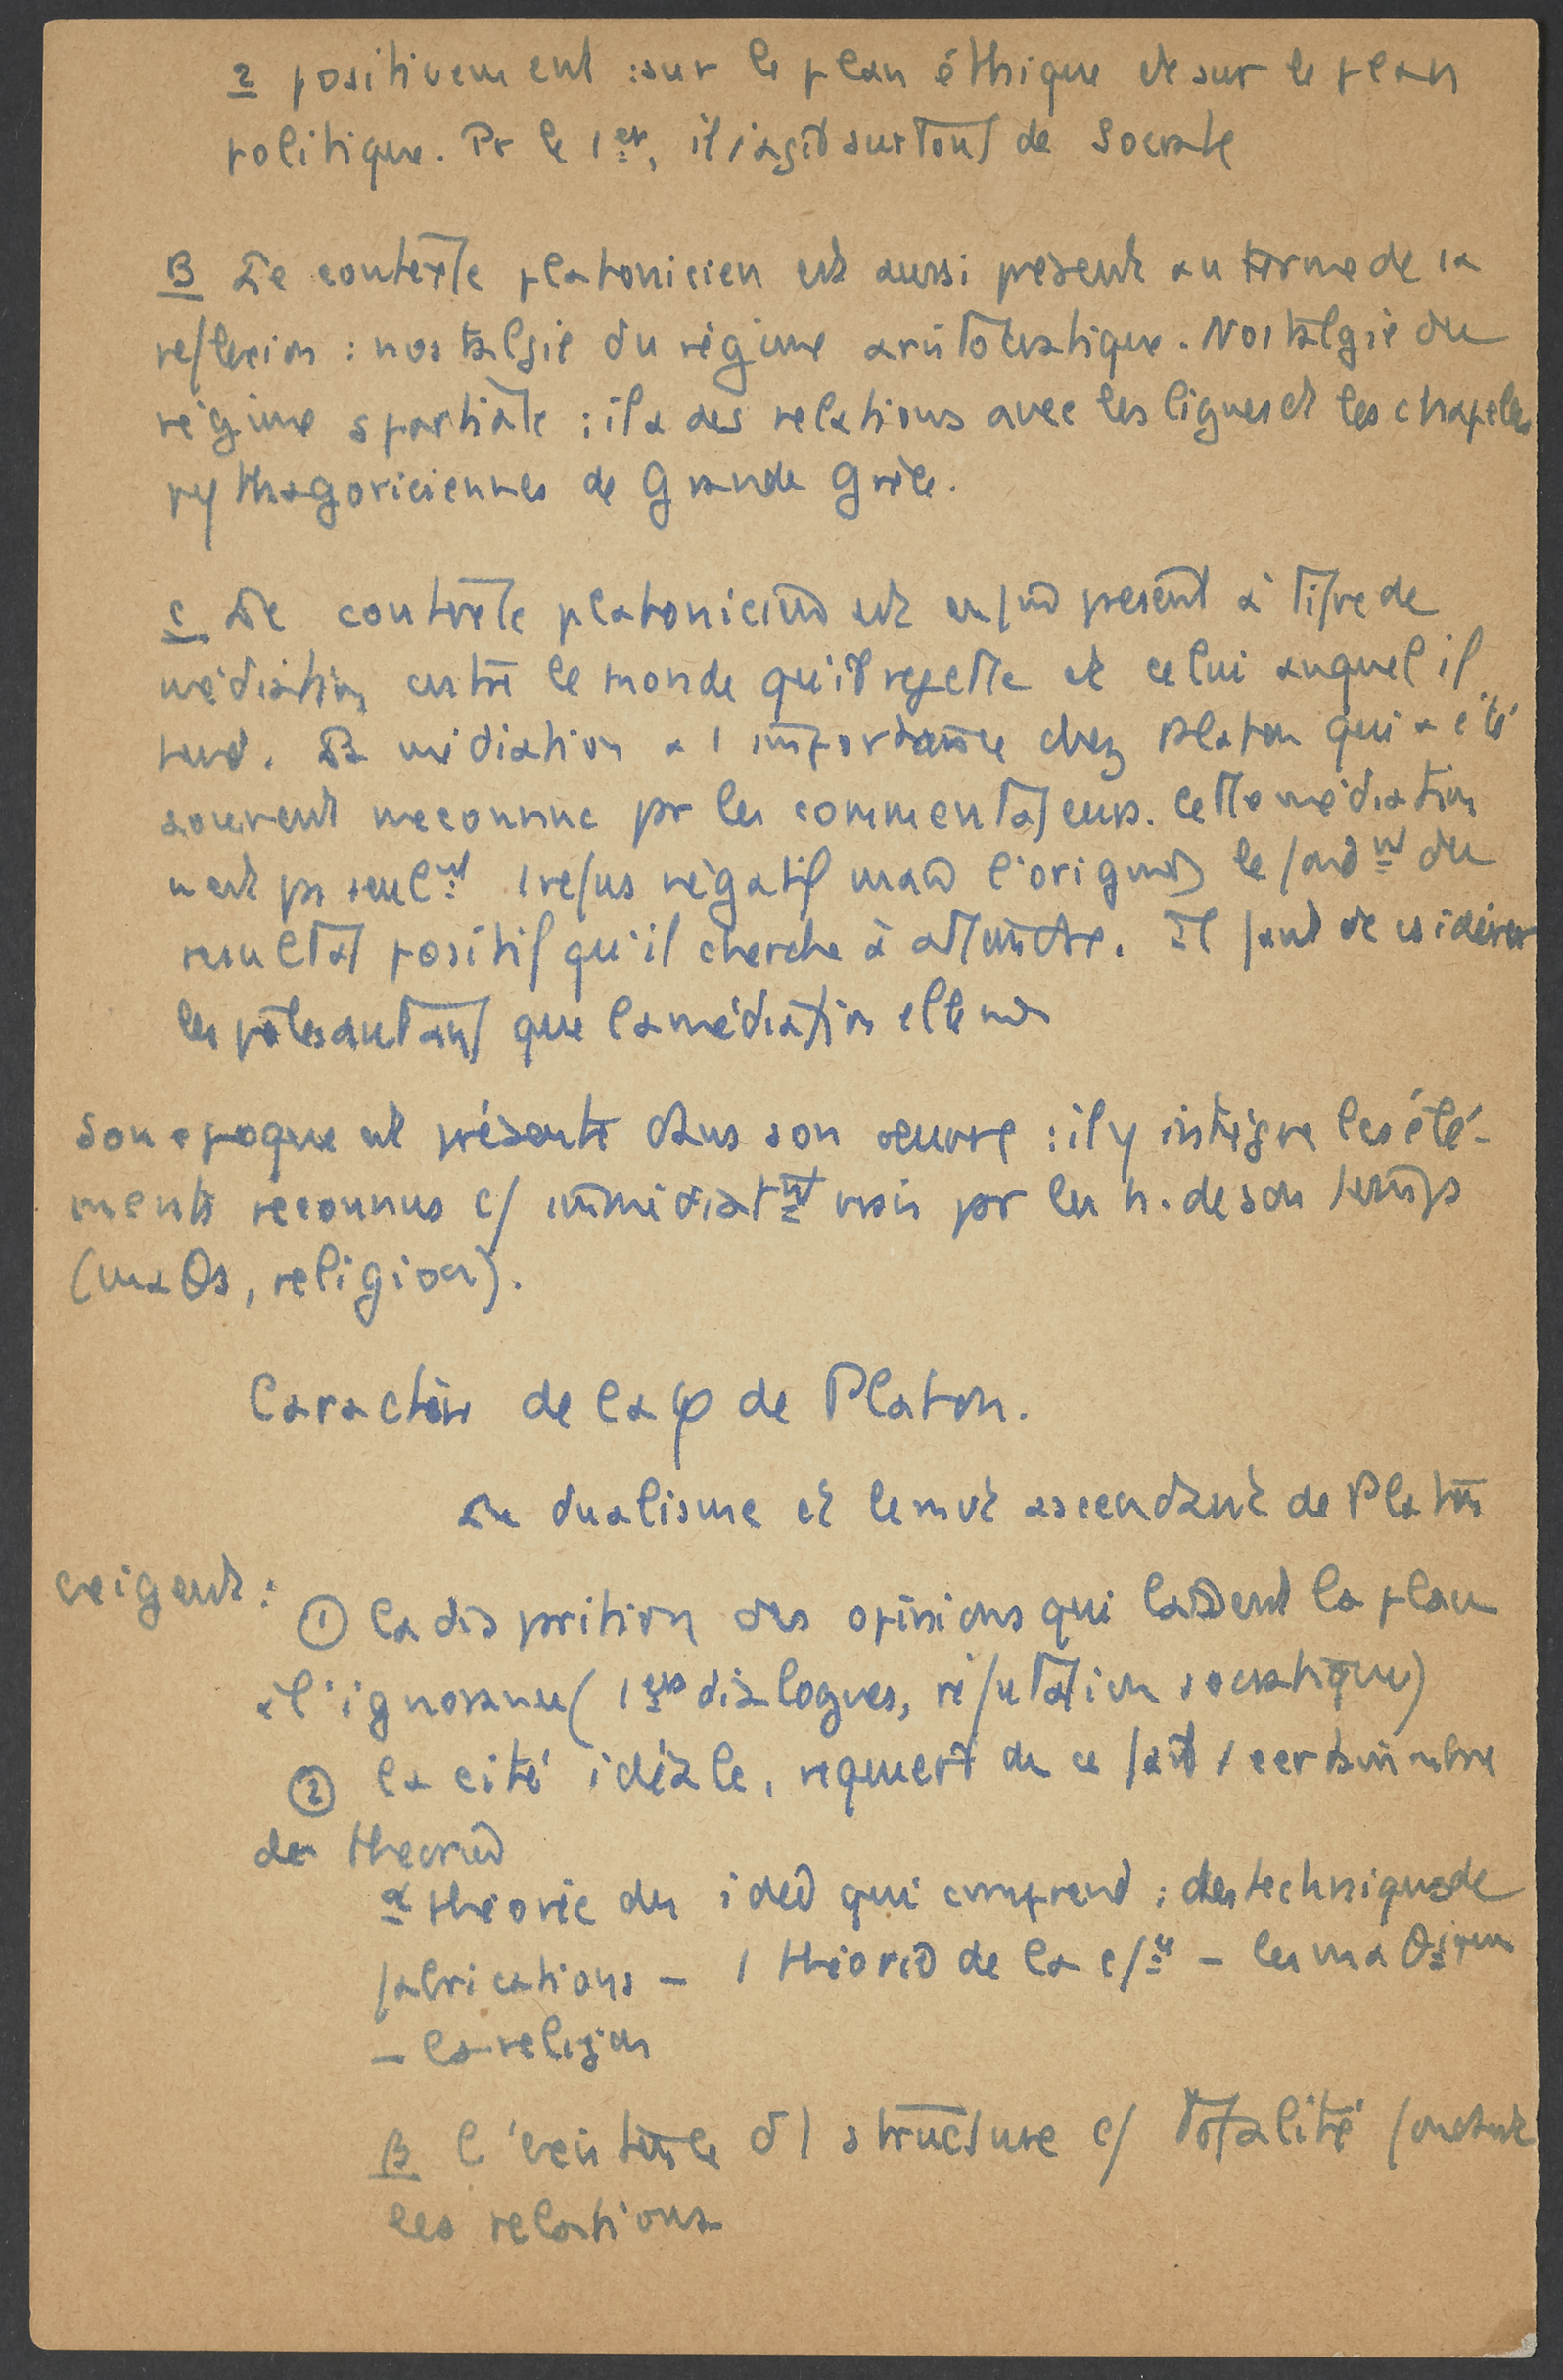 2 positivement : sur le plan éthique et sur le plan
politique. Pr le 1er, il s'agit surtout de Socrate
B Le contexte platonicien est aussi présent au terme de la
reflexion : nostalgie du régime aristocratique. Nostalgie du
régime spartiate : il a des relations avec les ligues et les chapelles
pythagoriciennes de Grande Grèce.
C Le contexte platonicien est enfin présent à titre de
médiation entre le monde qu'il rejette et celui auquel il
tend. La médiation a 1 importance chez Platon qui a été
souvent meconnue pr les commentateurs. Cette médiation
n'est ps seult 1 refus négatif mais l'origine, le fondt du
resultat positif qu'il cherche à atteindre. Il faut csidérer
les pôles autant que la médiation elle
Son epoque est présente dans son oeuvre : il y intègre les élé-
ments reconnus c/ immédiatt vrais pr les h. de son temps
(maθs, religion).
Caractère de la φ de Platon.
Le dualisme et le mvt ascendant de Platon
exigent :
① la disparition des opinions qui laissent la place
à l'ignorance (1ers dialogues, réfutation socratique)
② la cité idéale, requiert de ce fait 1 certain nbre
de theories
α théorie des idées qui comprend : des techniques de
fabrications – 1 théorie de la – les maθs
– la religion
β l'existence d'1 structure c/ totalité fondant
les relations